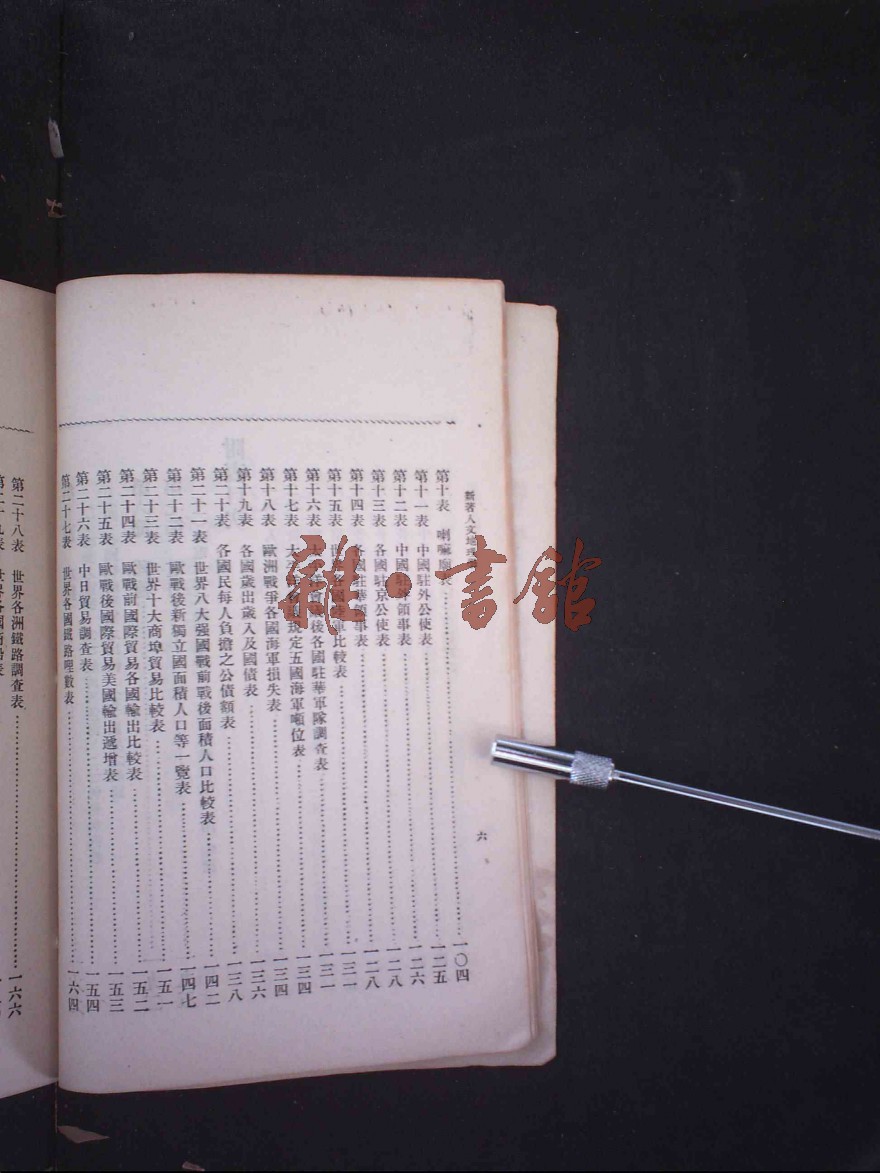 新著人文地理
第十表 喇嘛……一〇四
第十一表 中國駐外公使表……一二五
第十二表 中國駐外領事表……一二六
第十三表 各國駐京公使表……一二八
第十四表 各國駐華領事表……一二八
第十五表 世界各國陸軍比較表……一三一
第十六表 戰後各國駐華軍隊調查表……一三一
第十七表 太 規定五國海軍噸位表……一三四
第十八表 歐洲戰爭各國海軍損失表……一三四
第十九表 各國歲出歲入及國債表……一三六
第二十表 各國民每人負擔之公債額表……一三八
第二十一表 世界八大强國戰前戰後面積人口比較表……一四二
第二十二表 歐戰後新獨立國面積人口等一覽表……一四七
第二十三表 世界十大商埠貿易比較表……一五一
第二十四表 歐戰前國際貿易各國輸出比較表……一五二
第二十五表 歐戰後國際貿易美國輸出遞增表……一五三
第二十六表 中日貿易調查表……一五四
第二十七表 世界各國鐵路哩數表……一六四
六
第二十八表 世界各洲鐵路調查表……一六六
雜·書館